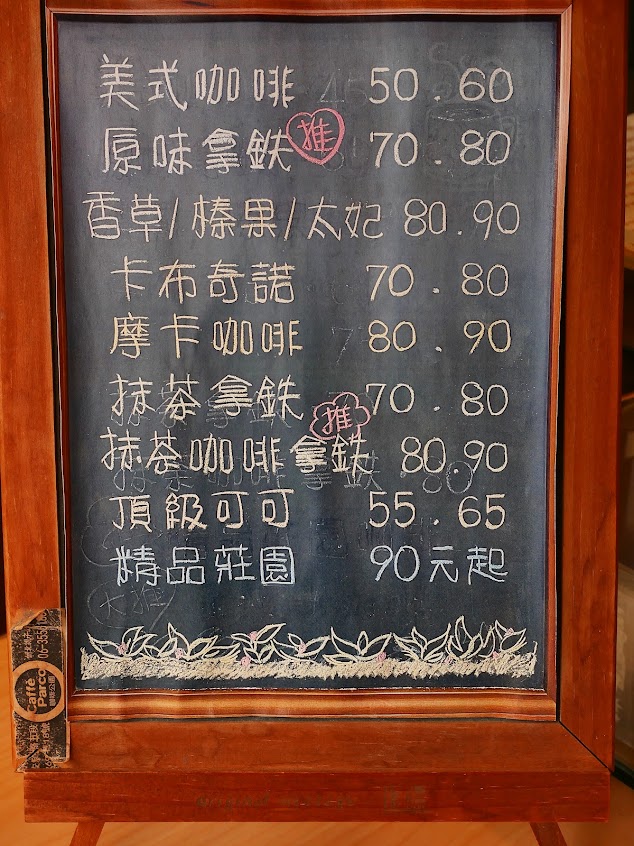 美式咖啡 50.60
原味拿鉄 推 70.80
香草/榛果/太妃 80.90
卡布奇諾 70.80
摩卡咖啡 80.90
抹茶拿鉄 70.80
推
抹茶咖啡拿鉄 80.90
頂級可可 55.65
精品莊園 90元起
大推
Caffé
Parco
咖啡公園